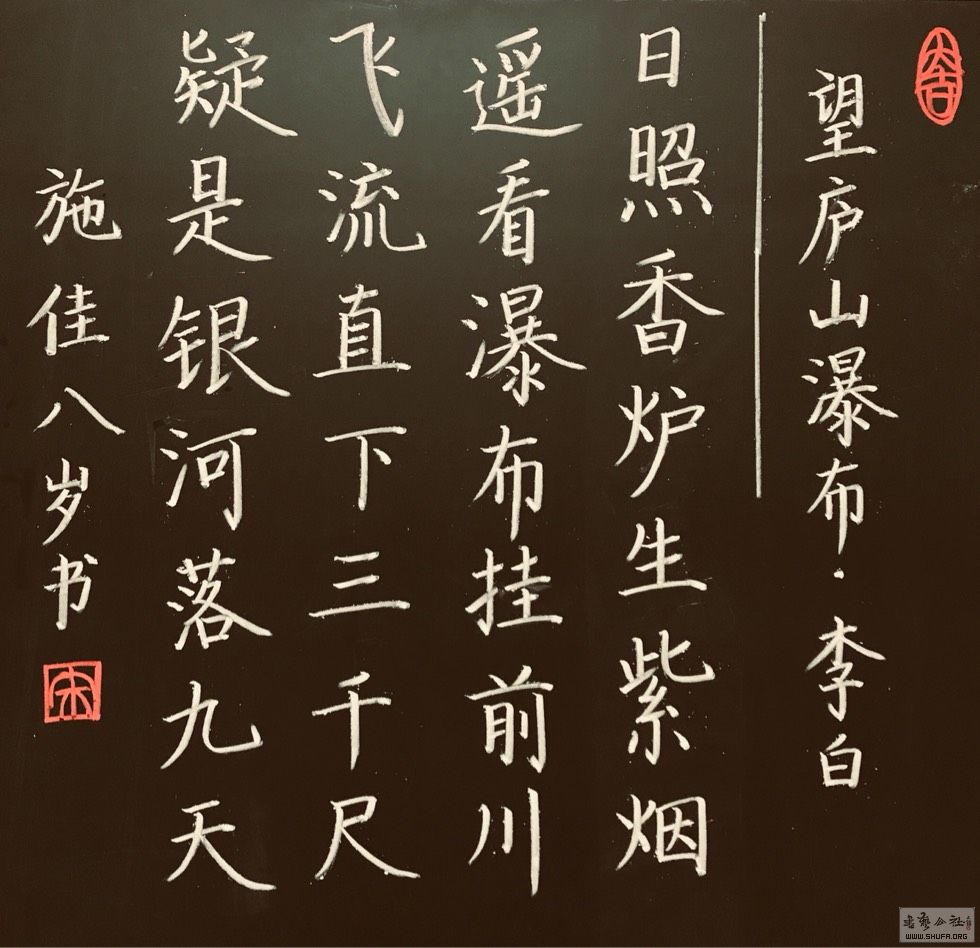 望庐山瀑布·李白
日照香炉生紫烟
遥看瀑布挂前川
飞流直下三千尺
疑是银河落九天
施佳八岁书
WWW.SHUFA.ORG